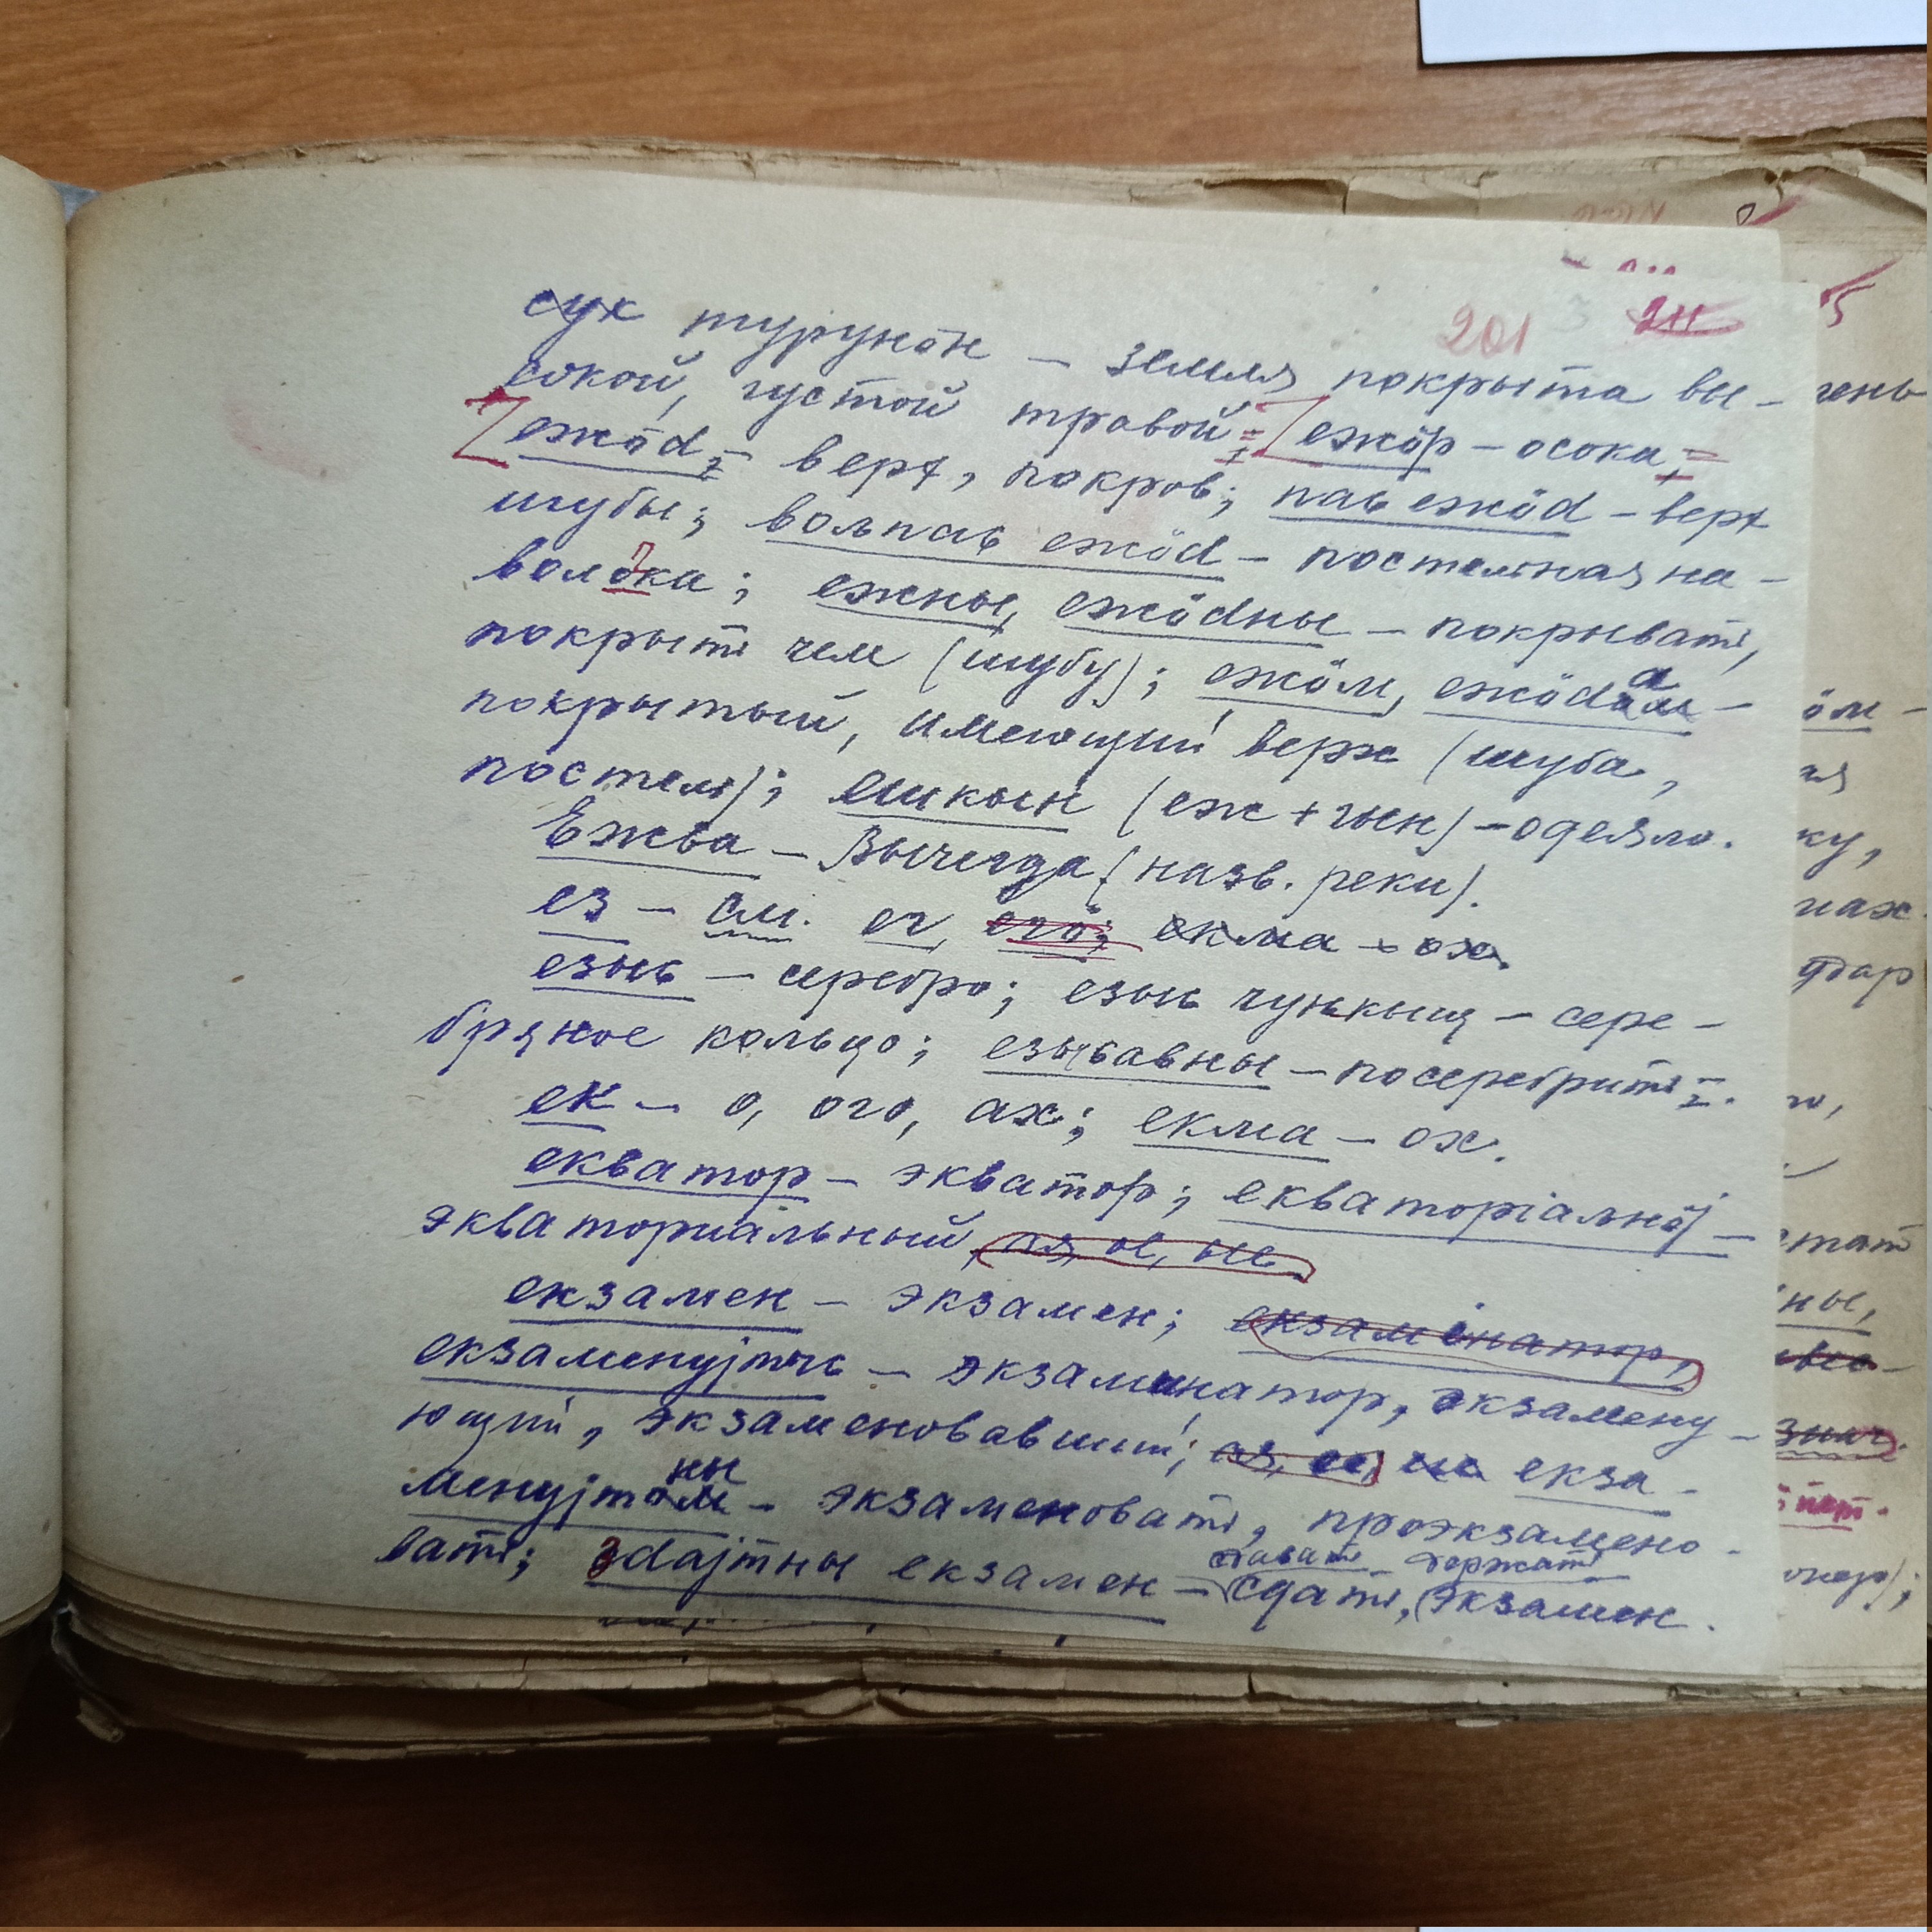 201 211
сук турунӧн – земля покрыта вы-
сокой, густой травой; ежӧр – осока;
ежӧd, – верх, покров; паԍ ежӧd – верх
шубы; воԉпаԍ ежӧd – постельная на-
волочка; ежны, ежӧdны – покрывать,
покрыть чем (шубу); ежӧм, ежӧdа –
покрытый, имеющий верх (шуба,
постель); ешкын (еж + гын) – одеяло.
Ежва – Вычегда (назв. реки).
ез – см. ег, екма – ох.
езыԍ – серебро; езыԍ чуԋкыщ – сере-
бряное кольцо; езыԍавны – посеребрить.
ек – о, ого, ах; екма – ох.
екватор – экватор; екваторіаԉнӧј –
экваториальный, ая, ое, ые
екзамен – экзамен; екзамінатор,
екзаменујтыԍ – экзаминатор, экзамену-
ющий, экзаменовавший; ая, ее, ие екза-
менујтны – экзаменовать, проэкзамено-
вать; здајтны екзамен – сдать, экзамен.
сдавать держать